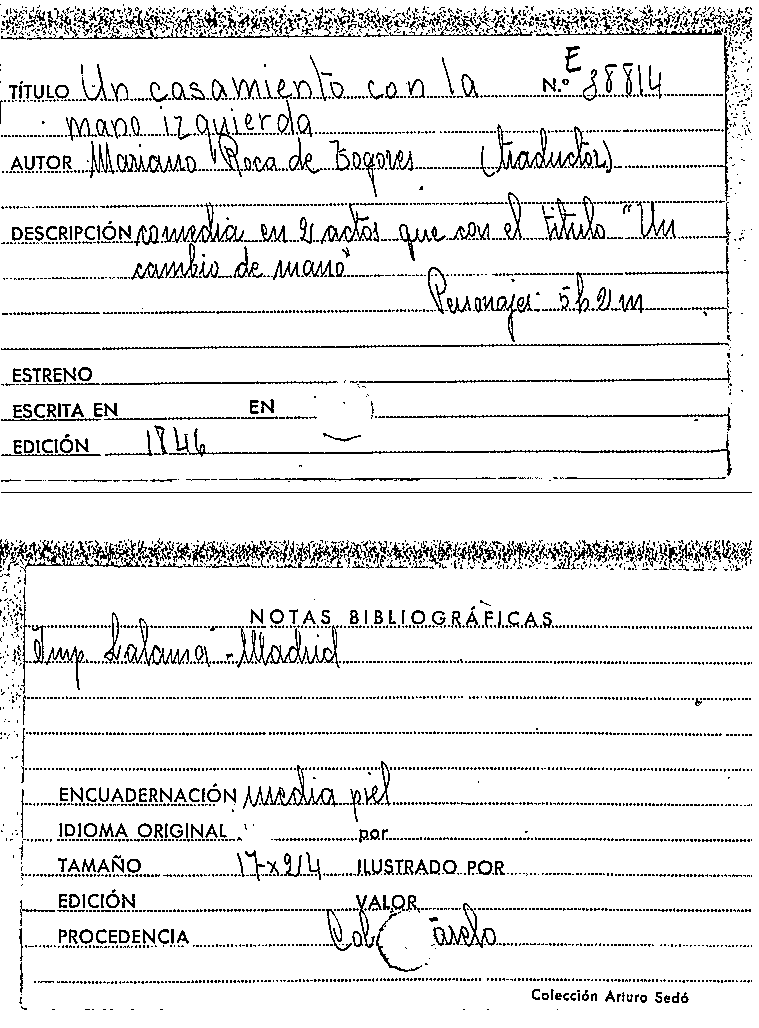 TÍTULO Un casamiento con la N.º E 38814
mano izquierda
AUTOR Mariano Roca de Togores (traductor)
DESCRIPCIÓN comedia en 2 actos que con el titulo "Un
cambio de mano"
Personajes: 5h 2m
ESTRENO
ESCRITA EN EN
EDICIÓN 1846
NOTAS BIBLIOGRÁFICAS
Imp Lalama - Madrid
ENCUADERNACIÓN media piel
IDIOMA ORIGINAL por
TAMAÑO 17x24 ILUSTRADO POR
EDICIÓN VALOR
PROCEDENCIA
Colección Arturo Sedó